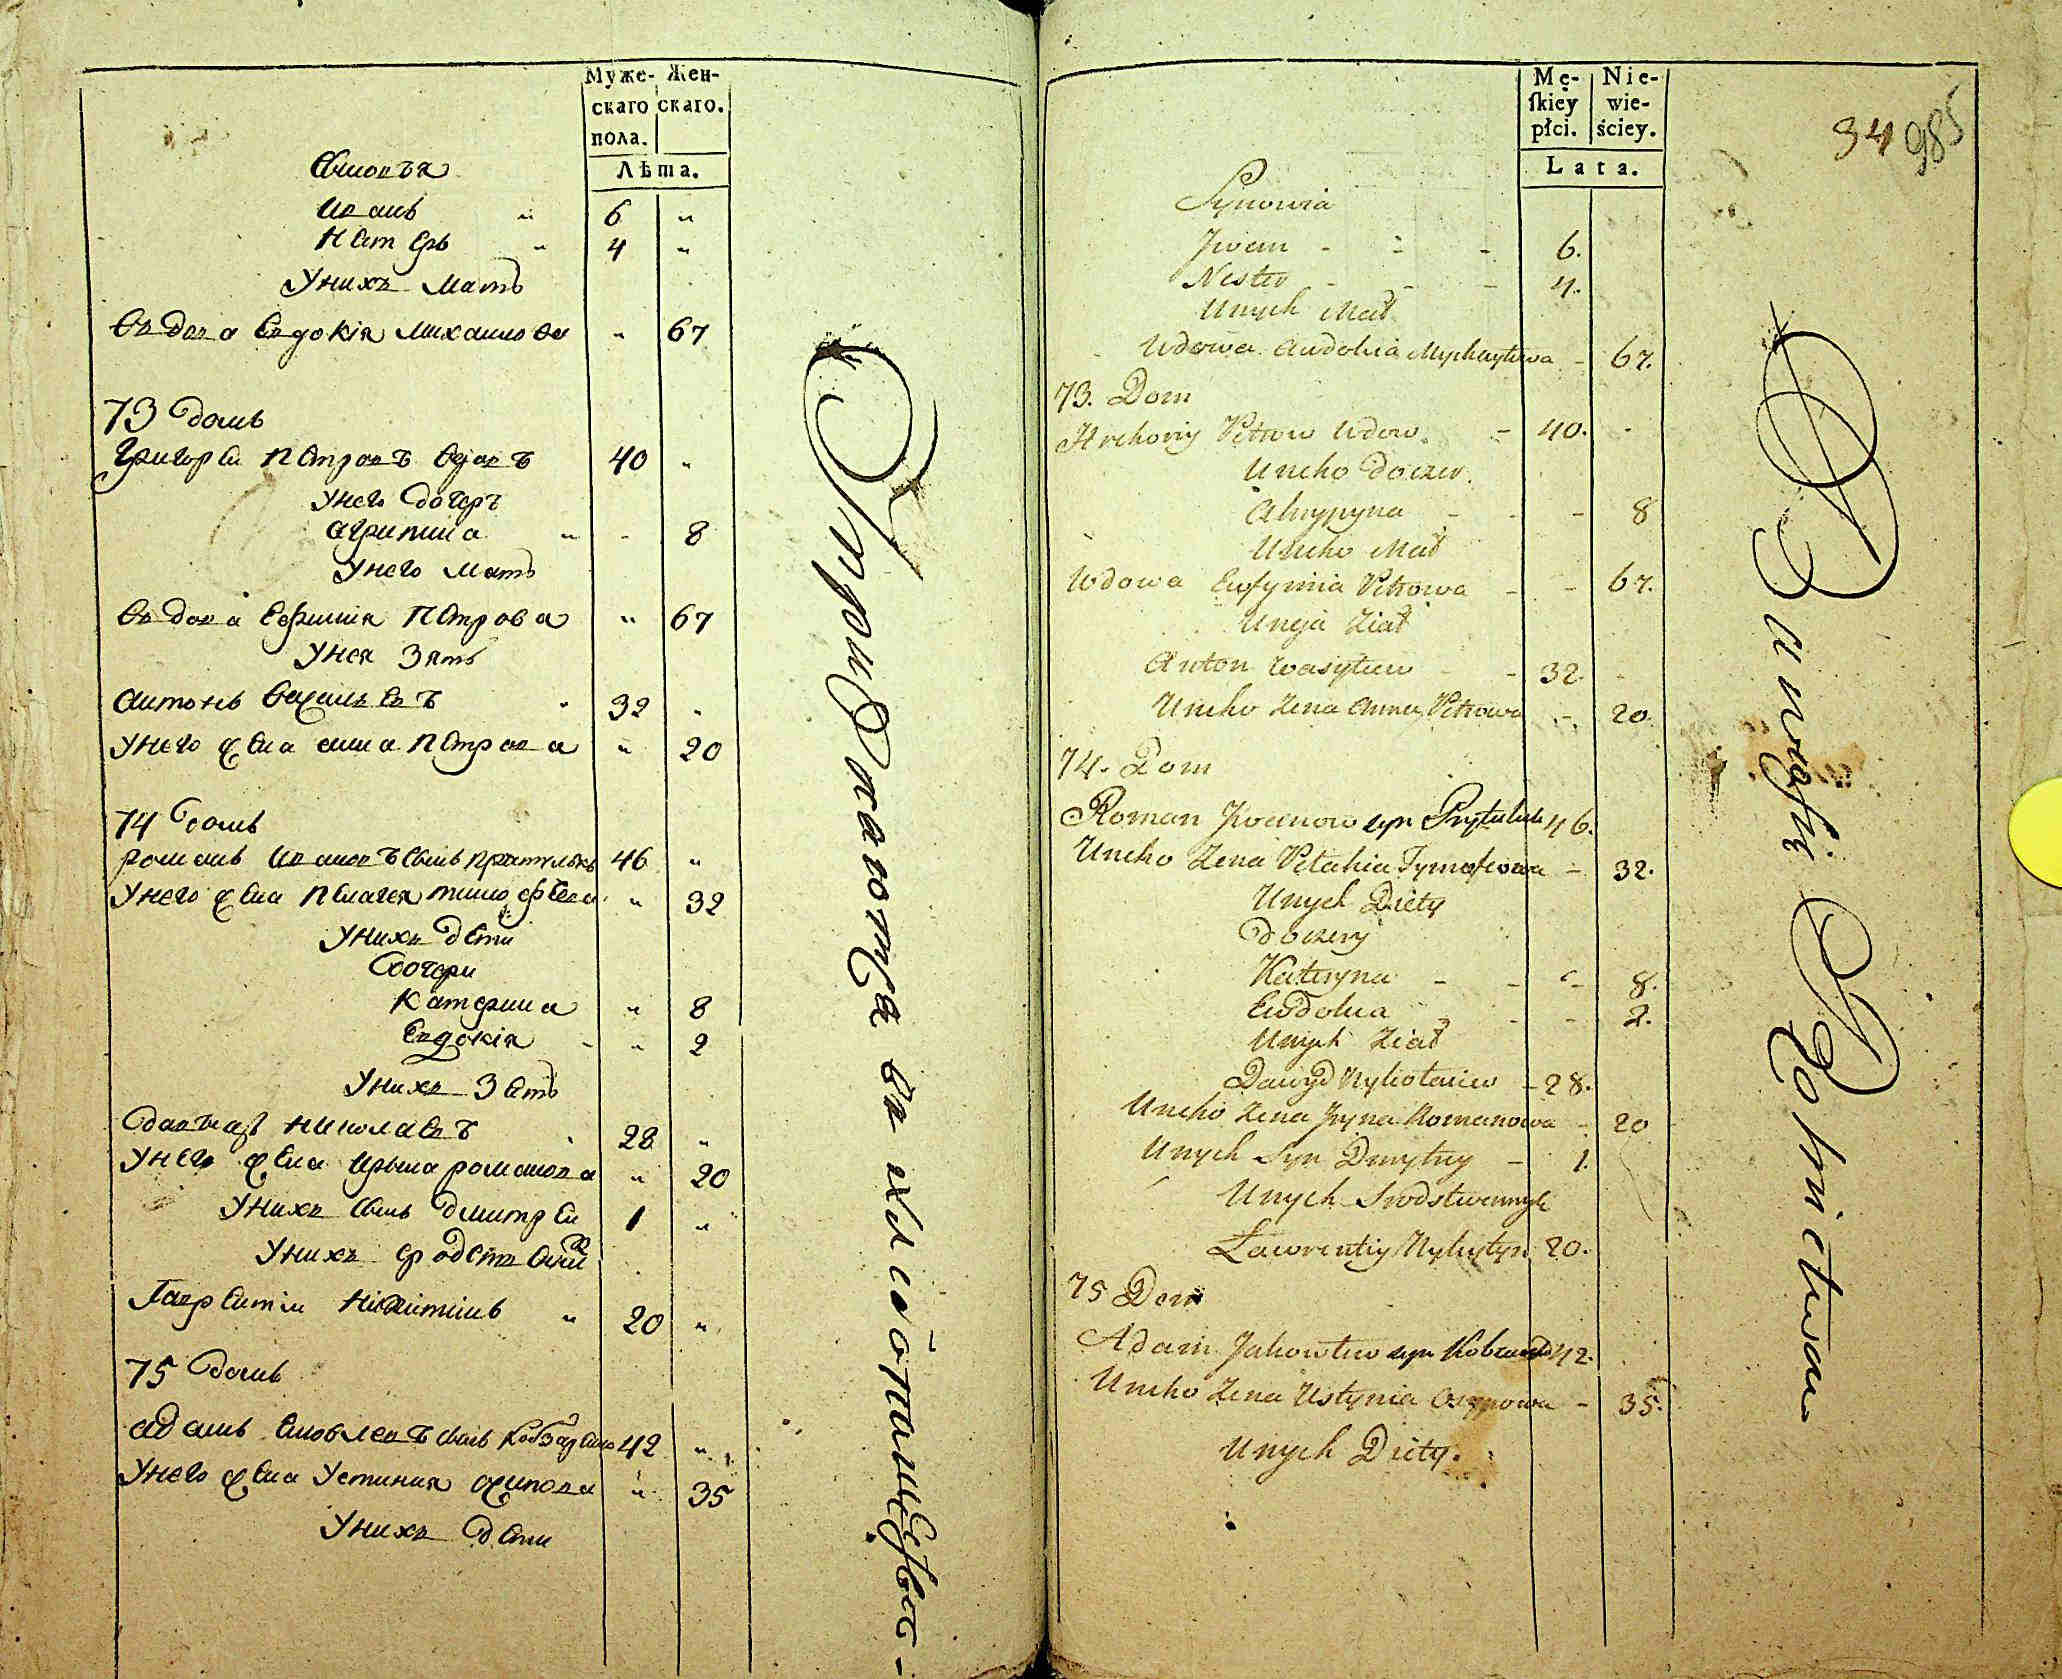 Муже- Жен-
скаго скаго.
пола.
Лѣта.
Сыновъя
Иванъ " 6 "
Нестеръ " 4 "
Унихъ Мать
Вдова Евдокія Михаилова " 67
73 домъ
Григорей Петровъ вдовъ 40 "
Унего дочеръ
Агрипина " - 8
Унего Мать
Вдова Ефимия Петрова " 67
Унея Зять
Антонъ Василъевъ " 32 "
Унего жена анна Петрова " 20
74 домъ
Романъ Ивановъ сынъ Притулюкъ 46 "
Унего жена Пелагея тимофеева " 32
Унихъ дети
дочери
Катерина " 8
Евдокія - " 2
Унихъ Зеть
давыдъ Николаевъ " 28 "
Унего жена Ирына романова " 20
Унихъ сынъ Дмитрей 1 "
Унихъ сродственник
Лаврентiи Никитинъ " 20 "
75 домъ
адамъ Яковлевъ сынъ Кобзаренко 42 "
Унего жена Устиния осипова " 35
Унихъ дети
Упражняютца въ хлебопашестве -
Mę- Nie-
skiey wie-
płci. ściey.
Lata.
34 985
Synowia
Jwan - - - 6.
Nester - - - 4.
Unych Mat
Udowa Audokia Mychayłowa - 67.
73. Dom
Hrehoriy Petrow Udow. - 40. -
Uneho Doczer.
Ahrypyna - - - 8
Uneho Mat
Wdowa Eufymia Petrowa - - 67.
Uneja Ziat
Anton Wasylew - - 32. -
Uneho Zena Anna Petrowa - 20.
74. Dom
Roman Jwanow syn Prytuluk 46.
Uneho Zena Pelahia Tymofeowa - 32.
Unych Diety
Doczery
Kateryna - - - 8.
Eudokia - - - 2.
Unych Ziat
Dawyd Nykołaiew - 28.
Uneho Zena Jryna Romanowa - 20
Unych Syn Dmytrey - 1.
Unych Srodstwennyk
Ławrentiy Nykytyn 20.
75 Dom
Adam Jakowlew syn Kobzarenko 42.
Uneho Zena Ustynia Osypowa - 35.
Unych Diety.
Bawiąsię Rolnictwem